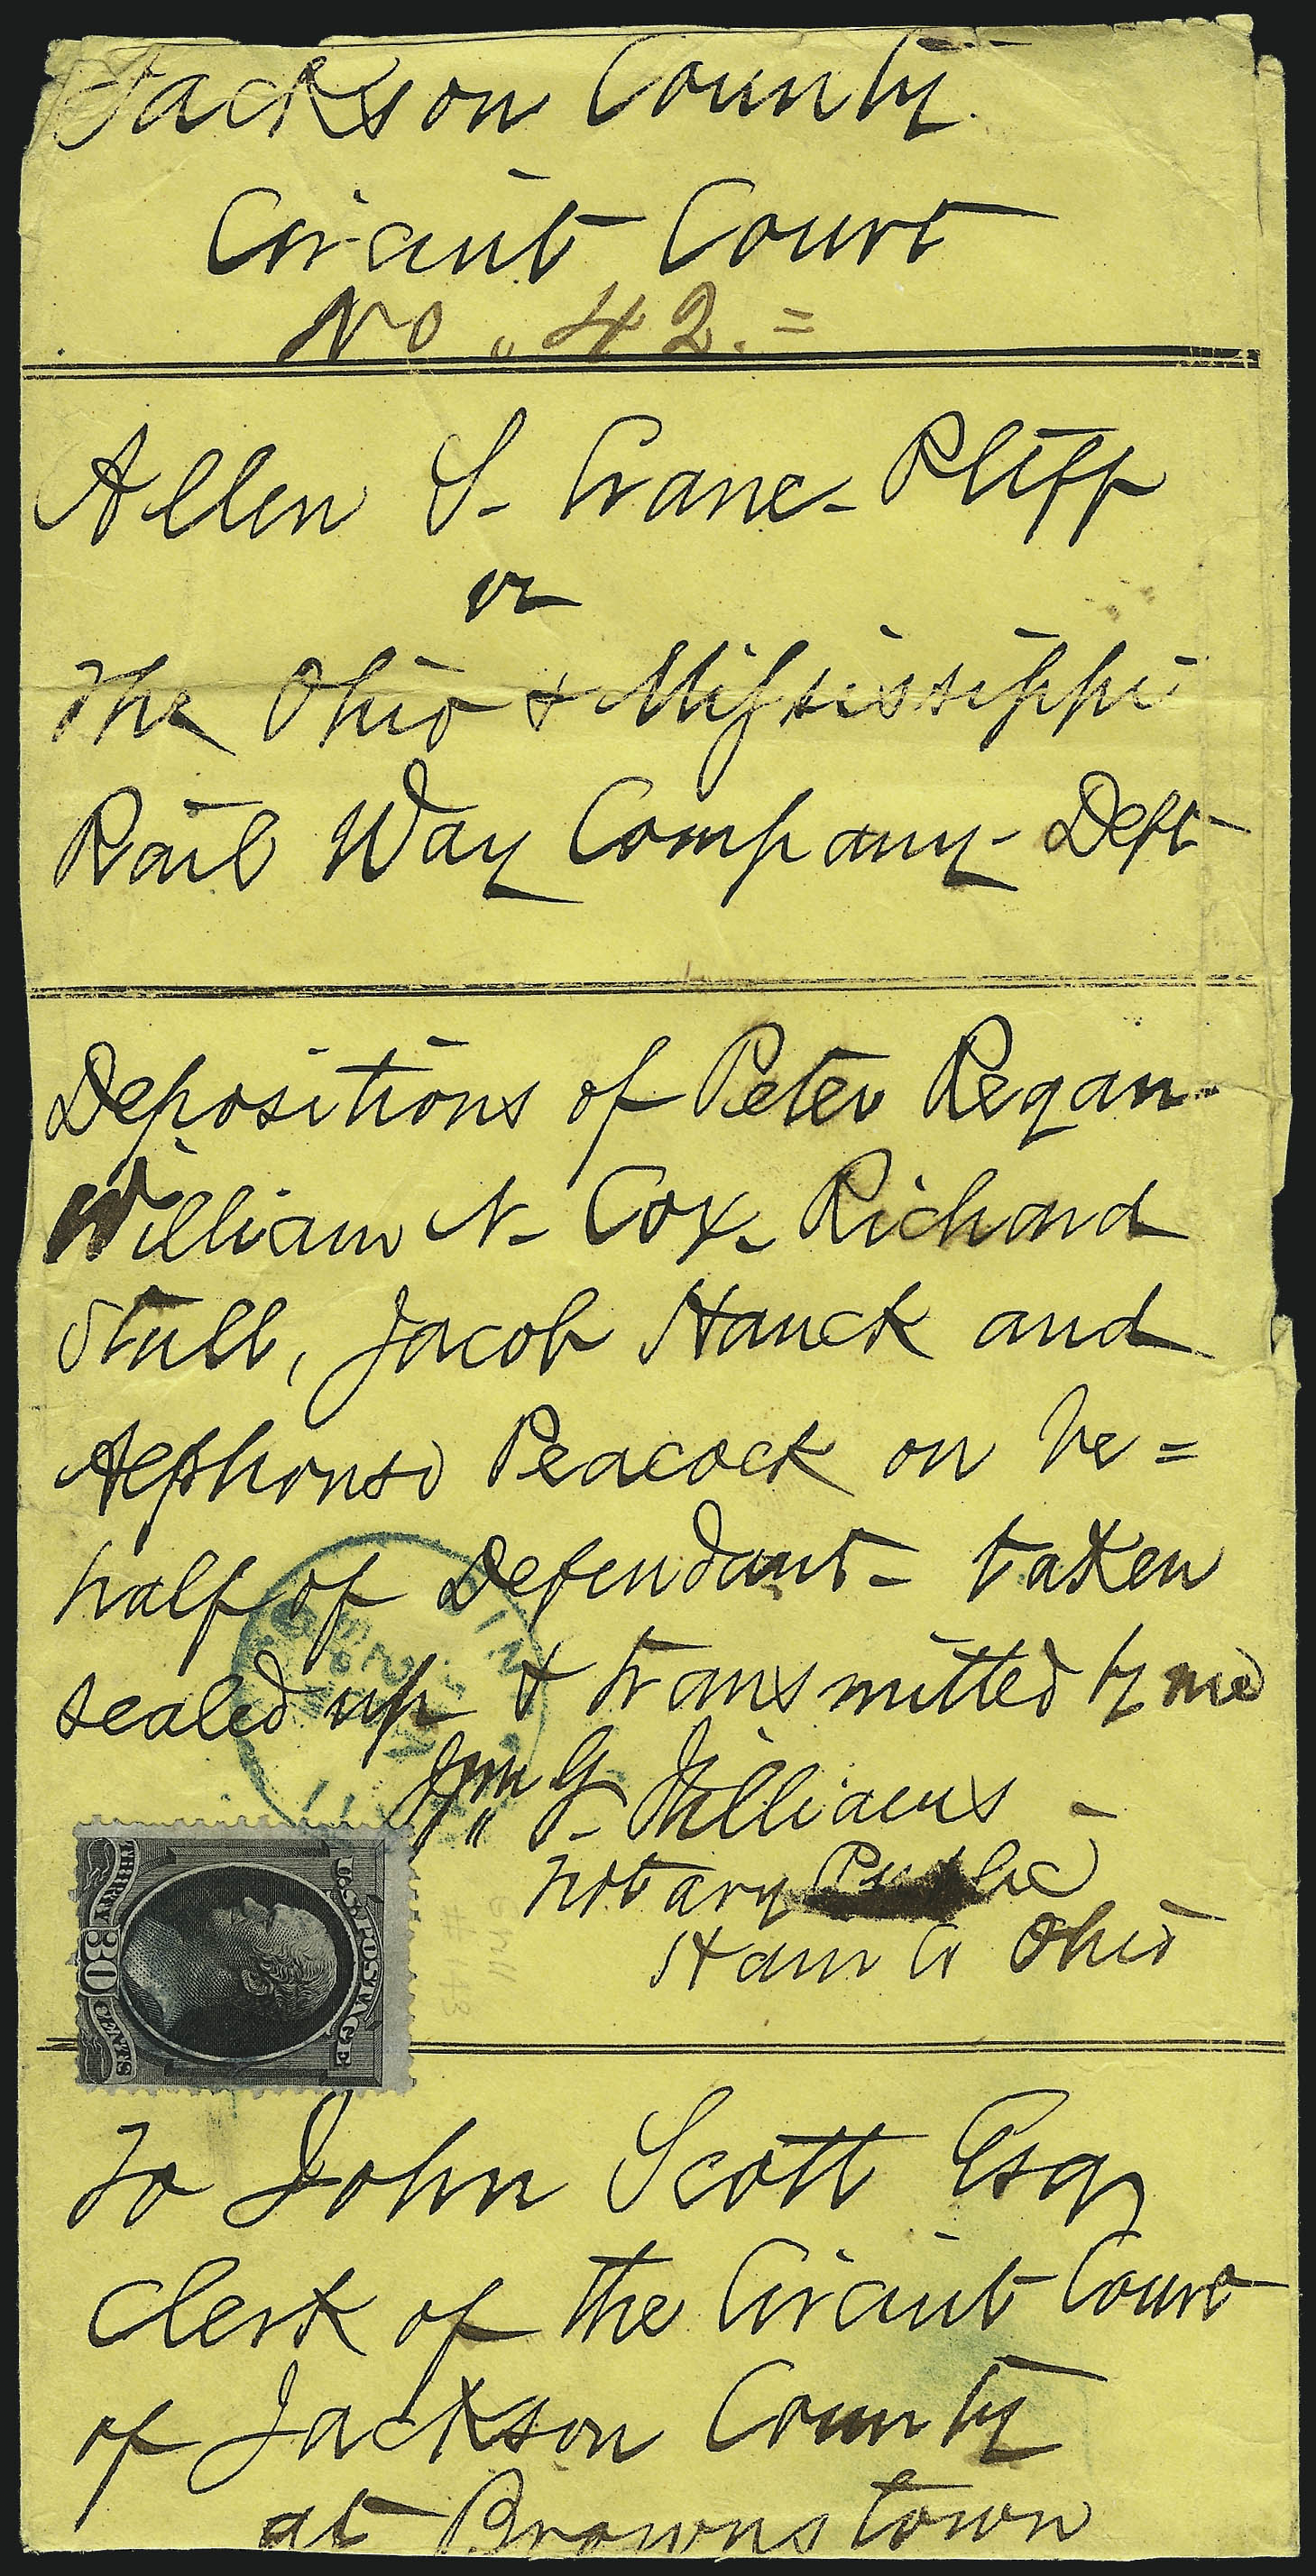 Jackson County
Circuit Court
No. 42. =
Allen S. Crane - Pltff
vs
The Ohio & Mississippi
Rail Way Company - Deft
Depositions of Peter Regan -
William N - Cox - Richard
Stull, Jacob Hauck and
Alphonso Peacock on be =
half of Defendant - taken
sealed up & transmitted by me
G. Williams -
Notary Public
Ham Co Ohio
U.S. POSTAGE
THIRTY 30 CENTS
To John Scott Esq
Clerk of the Circuit Court
of Jackson County
at Brownstown